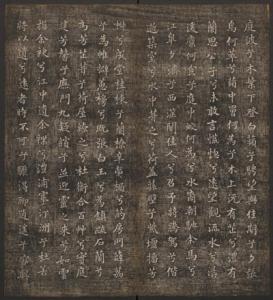 庭波兮木葉下登白薠兮騁望與佳期兮夕張
鳥何萃兮蘋中罾何為兮木上沅有芷兮澧有
蘭思公子兮未敢言慌惚兮遠望觀流水兮潺
湲麋何為兮庭中蛟何為兮水裔朝馳余馬兮
江皋夕濟兮西澨聞佳人兮召予將騰駕兮偕
逝築室兮水中葺之兮荷蓋蓀壁兮紫壇播芳
椒兮成堂桂棟兮蘭橑辛夷楣兮葯房罔薜荔
兮為帷擗蕙櫋兮既張白玉兮為鎮疏石蘭兮
為芳芷葺兮荷屋繚之兮杜衡合百草兮實庭
建芳馨兮廡門九嶷繽兮並迎靈之來兮如雲
捐余袂兮江中遺余褋兮澧浦搴汀洲兮杜若
將以遺兮遠者時不可兮驟得聊逍遙兮容與